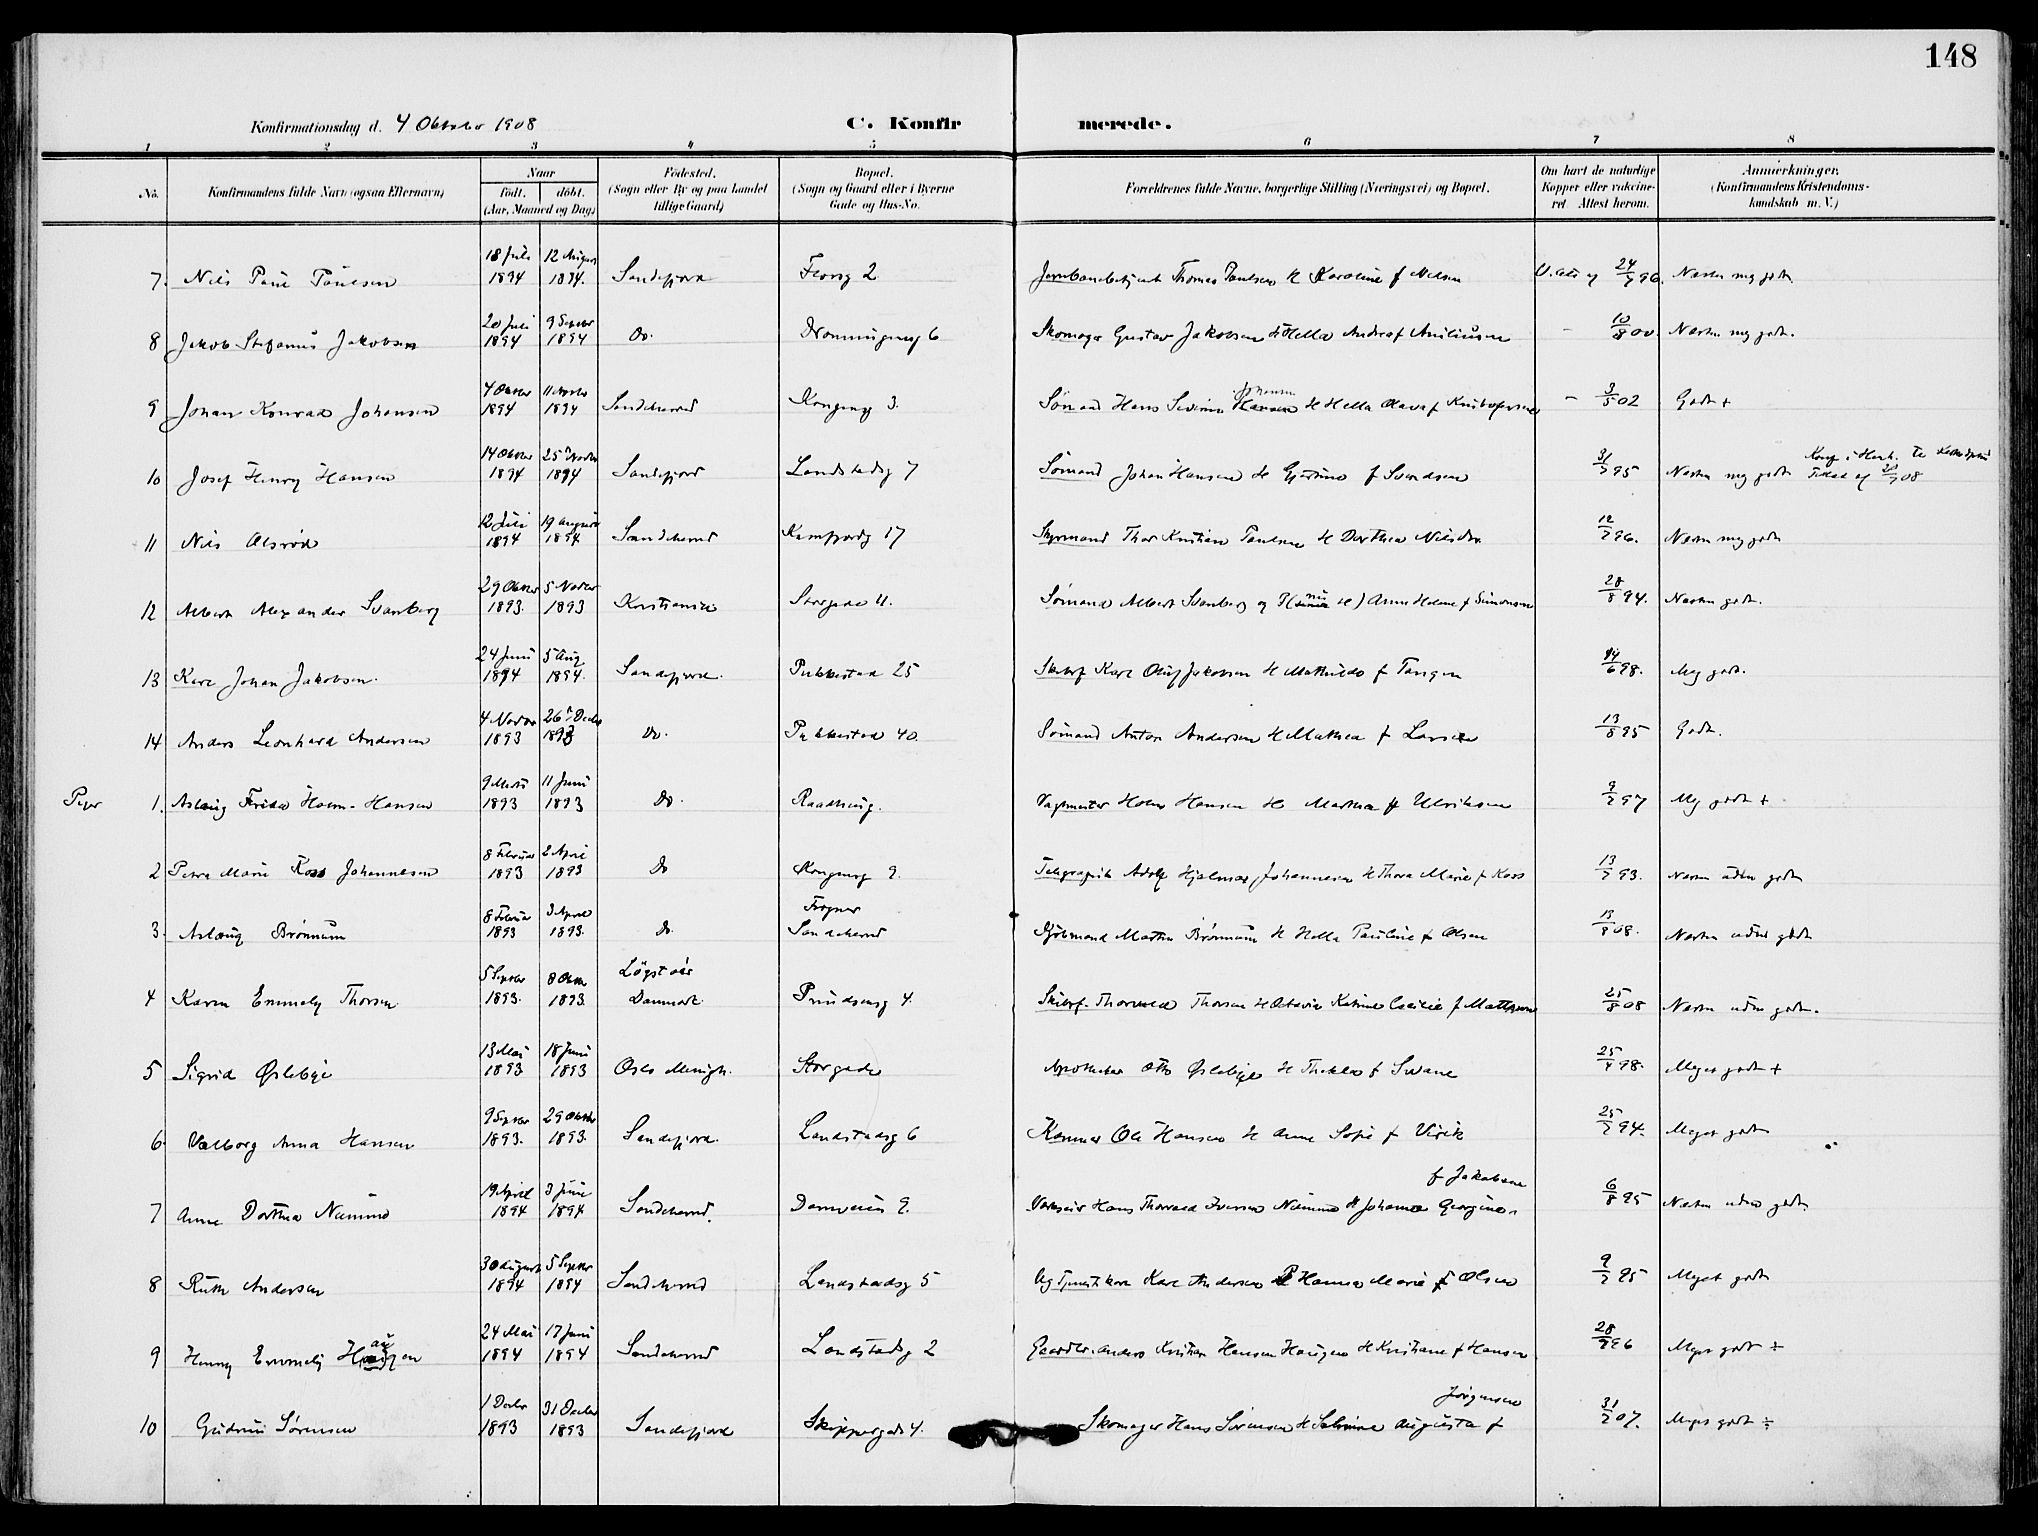 148
Konfirmationsdag d. 4 Oktober 1908
C. Konfirmerede.
1 2 3 4 5 6 7 8
No. Konfirmandens fulde Navn (ogsaa Efternavn) Naar født. døbt. (Aar, Maaned og Dag) Fødested. (Sogn eller By og paa Landet tillige Gaard) Bopæl. (Sogn og Gaard eller i Byerne Gade og Hus-No. Forældrenes fulde Navne, borgerlige Stilling (Næringsvei) og Bopæl. Om havt de naturlige Kopper eller vakcineret Attest herom. Anmærkninger. (Konfirmandens Kristendomskundskab m. V.)
7. Nils Paul Paulsen 18 Juli 1894 12 August 1894. Sandefjord 2 Thomas Paulsen H Karoline f Nilsen 24/7 96. Næsten meg godt
8 Jakob Stefanus Jakobsen 20 Juli 1894 9 Septbr 1894 Do. Dronningensg 6 Skomager Gustav Jakobsen H Hella Andrea f 10/8 00. Næsten meg godt.
9 Johan Konrad Johansen 4 Oktber 1894 11 1894 Sandeherred Kongensg 3. Sømand Hans Severin Johansen H Hella Olava f Kristofersen – 3/5 02 Godt +
10 Josef Henry Hansen 14 Oktber 1894 25 Novbr 1894 Sandefjord Landstadsg 7 Sømand Johan Hansen H f Svendsen 31/7 95 Næsten meg godt
11 Nils Olsrød 12 Juli 1894 19 August 1894 Sandeherred Kamfjordg 17 Styrmand Thor Kristian Paulsen H Dorthea Nilsdtr 12/7 96. Næsten meg godt
12 Albert Alexander Svanberg 29 Oktber 1893. 5 Novber 1893 Kristiania Storgade 11. Sømand Albert Svanberg og Anne Helene f Simonsen 28/8 94. Næsten godt.
13 Karl Johan Jakobsen. 24 Juni 1894 5 Aug 1894. Sandefjord. Pukkestad 25 Skibsf Karl Oluf Jakobsen H Mathilde f Tangen 14/6 98. Meg godt.
14 Anders Leonhard Andersen 4 Novbr 1893 26 Decbr 1893 Do. Pukkestad 40. Sømand Anton Andersen H Mathea f Larsen 13/8 95 Godt.
Piger 1. Aslaug Frida Holm-Hansen 9 Marts 1893 11 Juni 1893 Do. Raadhusg. Vagtmester Holm Hansen H Marthea f Ulriksen 9/7 97 Meg godt +
2 Petra Marie Koss Johannesen 8 Februar 1893 2 April 1893 Do Kongensg 9. Telegrafist Adolf Hjalmar Johannesen H Thora Marie f Koss 13/7 93. Næsten udm godt
3. Aslaug Brønnum 8 Februar 1893 3 April 1893. Do. Frogner Sandeherred Kjøbmand Martin Brønnum H Hella Pauline f Olsen 13/8 08. Næsten udm godt
4 Karen Emmely Thorsen 5 Septber 1893. 8 Oktbr 1893. Løgstør Danmark. Prindsensg 4. Skibsf. Thorvald Thorsen H Octavia Katrine Cecilie f 25/8 08 Næsten udm godt.
5 Sigrid Øslebye 13 Mai 1893 18 Juni 1893 Oslo Menigh. Storgade Apotheker Otto Øslebye H Thekla f Svane 25/4 98. Meget godt +
6 Valborg Anna Hansen 9 Septber 1893. 29 Oktbr 1893. Sandefjord. Landstadsg 6 Ole Hansen H Anne Sofie f Virik 25/7 94. Meget godt
7 Anne Dorthea Nummo 19 April 1894 3 Juni 1894 Sandeherred. 9. Hans Thorvald Iversen H Johanne Georgine f Jakobsen 6/8 95 Næsten udm godt.
8 Ruth Andersen 30 August 1894 5 Septbr 1894 Sandeherred Landstadsg 5 Karl Andersen Hanna Marie f Olsen 9/7 95 Meget godt
9 Henny Emmely Haugen 24 Mai 1894 17 Juni 1894 Sandeherred Landstadsg 2 Anders Kristian Hansen Haugen H Kristiane f Hansen 28/7 96 Meget godt ÷
10 Gudrun Sørensen 1 Decbr 1893 31 Decbr 1893 Sandefjord Skippergade 4. Skomager Hans Sørensen H Augusta f Jørgensen 31/7 07. Meget godt ÷